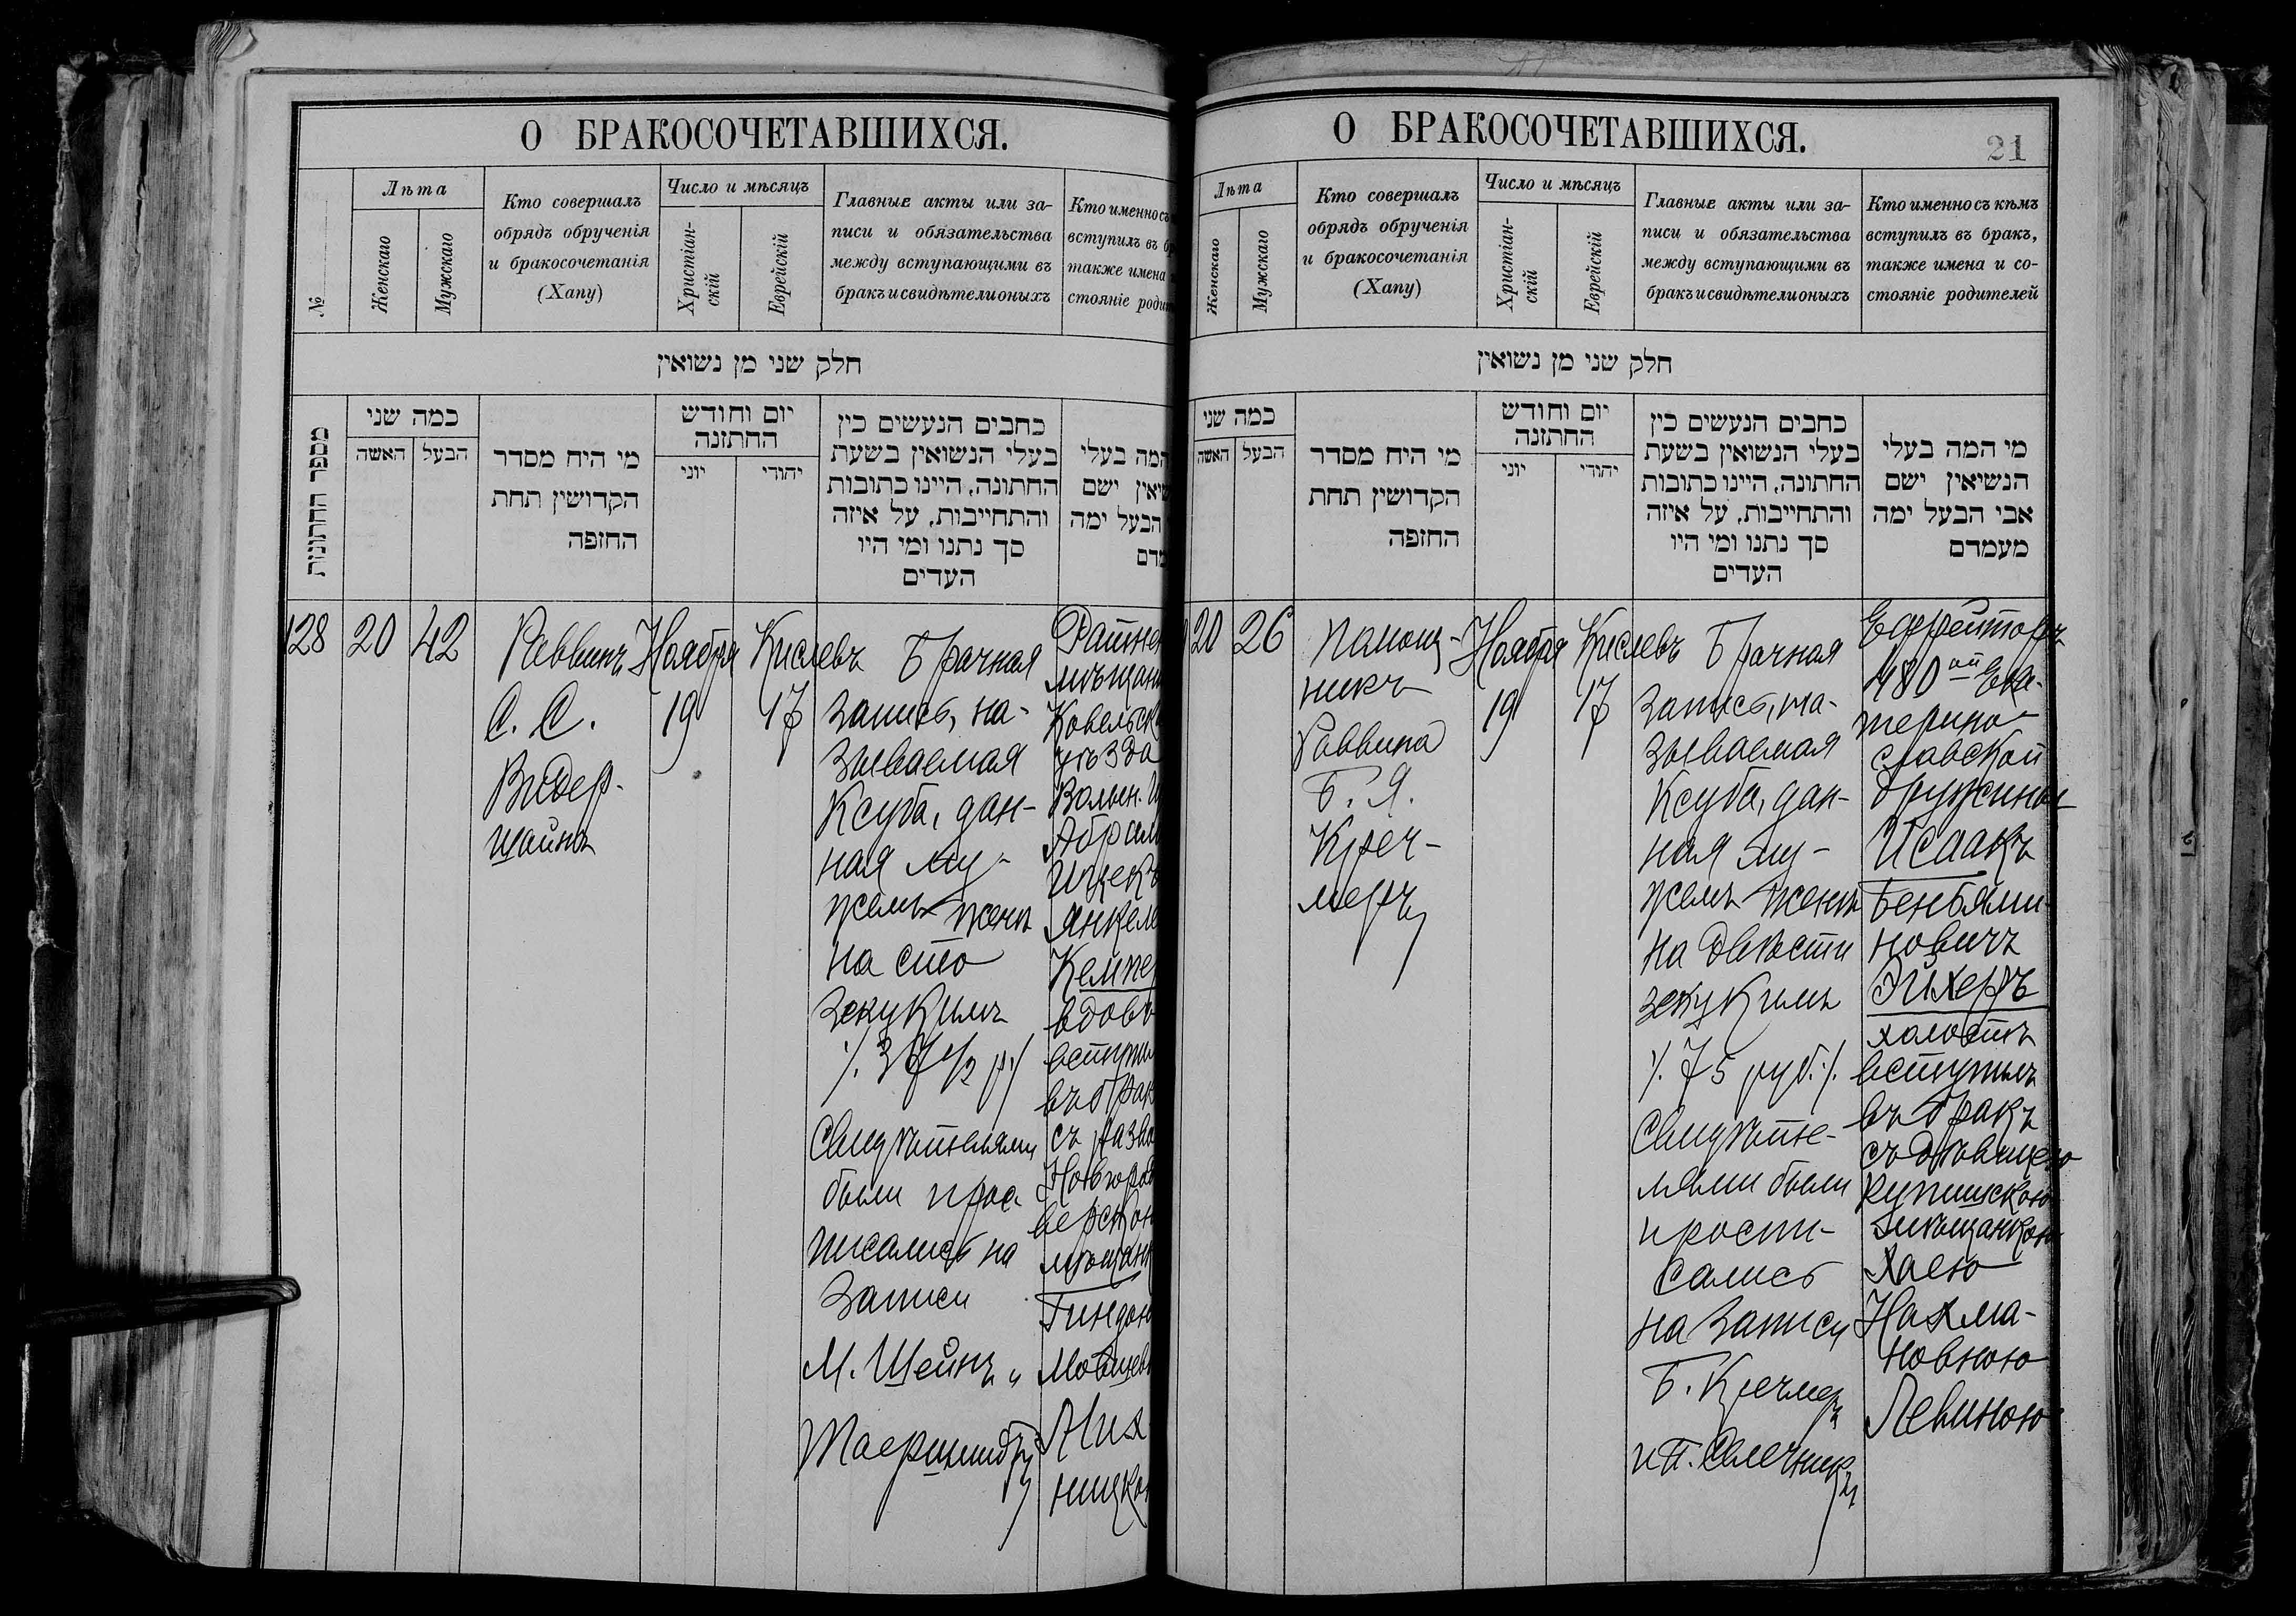 О БРАКОСОЧЕТАВШИХСЯ.
№
Лѣта
Женскаго
Мужскаго
Кто совершалъ
обрядъ обрученія
и бракосочетанія
(Хапу)
Число и мѣсяцъ
Христіан-
скій
Еврейскій
Главные акты или за-
писи и обязательства
между вступающими въ
бракъ и свидѣтели оныхъ
Кто именно съ
вступилъ въ
также имена
стояніе
חלק שני מן נשואין
מספר החתונות
כמה שני
האשה
הבעל
מי היח מסדר
הקדושין תחת
החופה
יום וחודש
החתונה
יוני
יהודי
כתבים הנעשים בין
בעלי הנשואין בשעת
החתונה, היינו כתובות
והתחייבות, על איזה
סך נתנו ומי היו
העדים
המה בעלי
ישם
הבעל ימה
128
20
42
Раввинъ
С. С.
Видер-
шайнъ
Ноября
19
Кислевъ
17
Брачная
запись, на-
зываемая
Ксуба, дан-
ная му-
жемъ женѣ
на сто
зекукимъ
/. 37 1/2 р./
Свидѣтелями
были
писались на
записи
М. Шейнъ и
Ковельск
уѣзда
Волын.
Абрам
Ицекъ
Янкеле
Кемпе
вдовъ
вступи
въ брак
съ разво
мѣщанк
Мовшев
О БРАКОСОЧЕТАВШИХСЯ.
21
Лѣта
Женскаго
Мужскаго
Кто совершалъ
обрядъ обрученія
и бракосочетанія
(Хапу)
Число и мѣсяцъ
Христіан-
скій
Еврейскій
Главные акты или за-
писи и обязательства
между вступающими въ
бракъ и свидѣтели оныхъ
Кто именно съ кѣмъ
вступилъ въ бракъ,
также имена и со-
стояніе родителей
חלק שני מן נשואין
כמה שני
האשה
הבעל
מי היח מסדר
הקדושין תחת
החופה
יום וחודש
החתונה
יוני
יהודי
כתבים הנעשים בין
בעלי הנשואין בשעת
החתונה, היינו כתובות
והתחייבות, על איזה
סך נתנו ומי היו
העדים
מי המה בעלי
הנשיאין ישם
אבי הבעל ימה
מעמדם
20
26
Помощ-
никъ
Раввина
Б. Я.
Креч-
меръ
Ноября
19
Кислевъ
17
Брачная
запись, на-
зываемая
Ксуба, дан-
ная му-
жемъ женѣ
на двѣсти
зекукимъ
/. 75 руб./.
Свидѣте-
лями были
на записи
Б. Кречмеръ
Ефрейторъ
480ой Ека-
терино-
славской
дружины
Исаакъ
Беньями-
новичъ
Эйхеръ
холостъ
вступилъ
въ бракъ
съ дѣвицею
мѣщанкою
Хаею
Нахма-
новною
Левиною